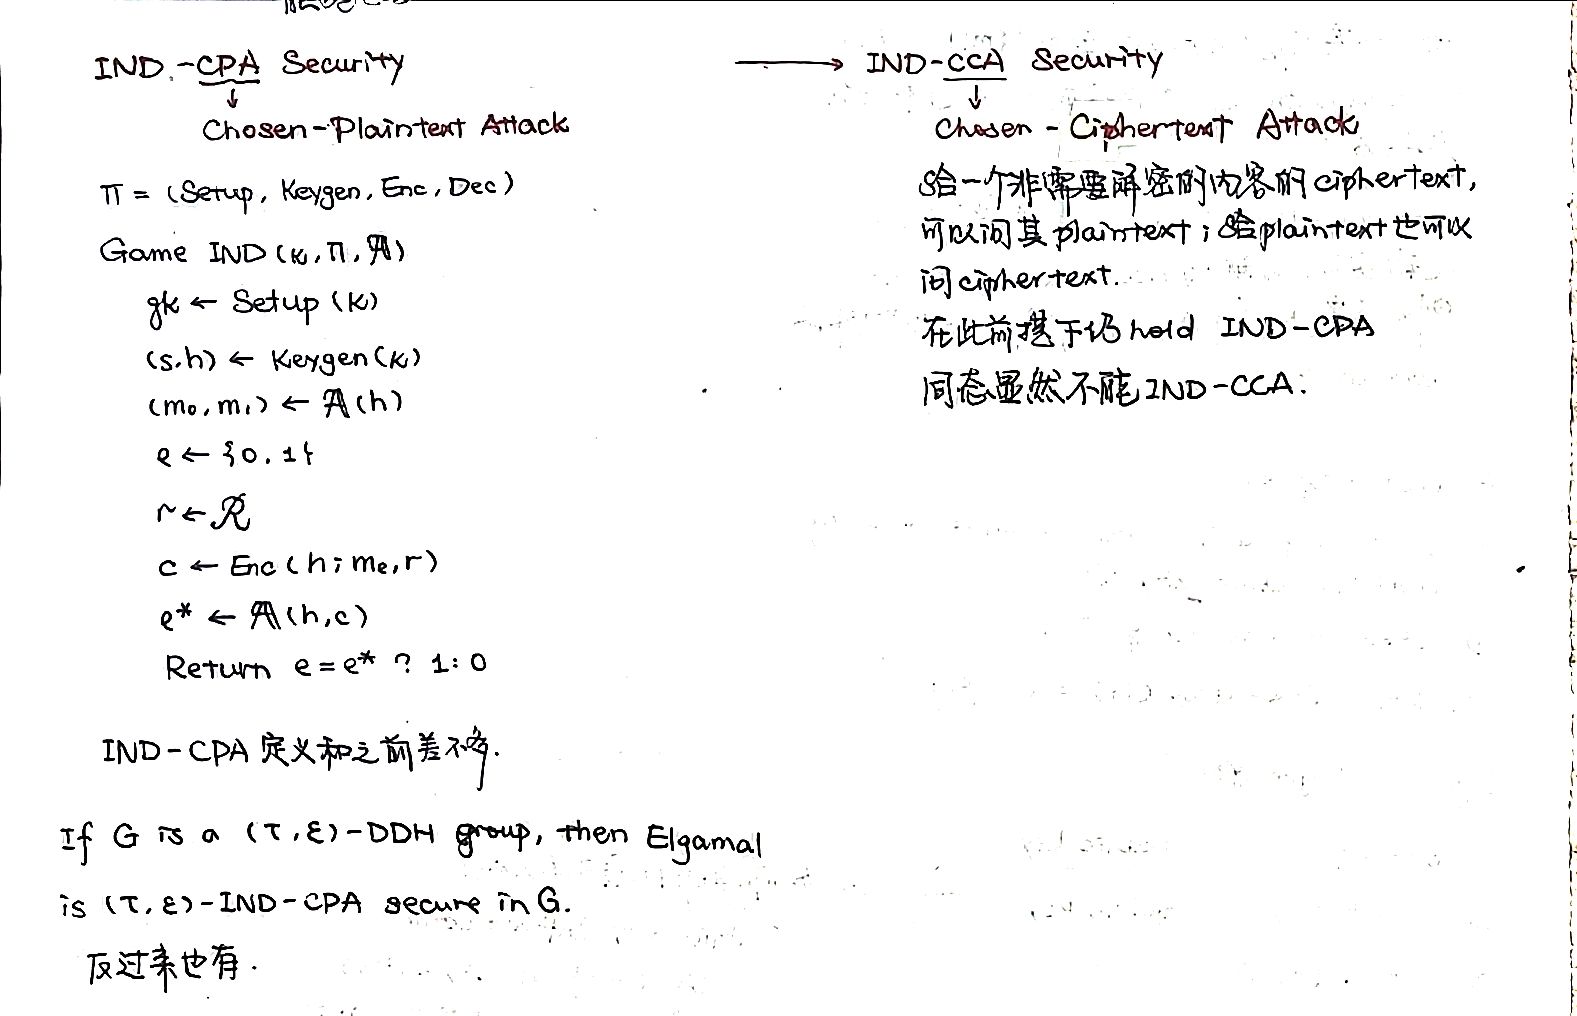 IND-CPA Security
↓
Chosen-Plaintext Attack
π = (Setup, Keygen, Enc, Dec)
Game IND (κ, π, A)
gk ← Setup (κ)
(s.h) ← Keygen(κ)
(m₀, m₁) ← A(h)
e ← {0.1}
r ← R
c ← Enc (h; mₑ, r)
e* ← A(h,c)
Return e = e* ? 1:0
IND-CPA 定义和之前差不多.
If G is a (τ, ε)-DDH group, then Elgamal
is (τ, ε)-IND-CPA secure in G.
反过来也有.
→ IND-CCA Security
↓
Chosen - Ciphertext Attack
给一个非需要解密的内容的 ciphertext,
可以问其 plaintext; 给 plaintext 也可以
问 ciphertext.
在此前提下仍 hold IND-CPA
同态显然不能 IND-CCA.